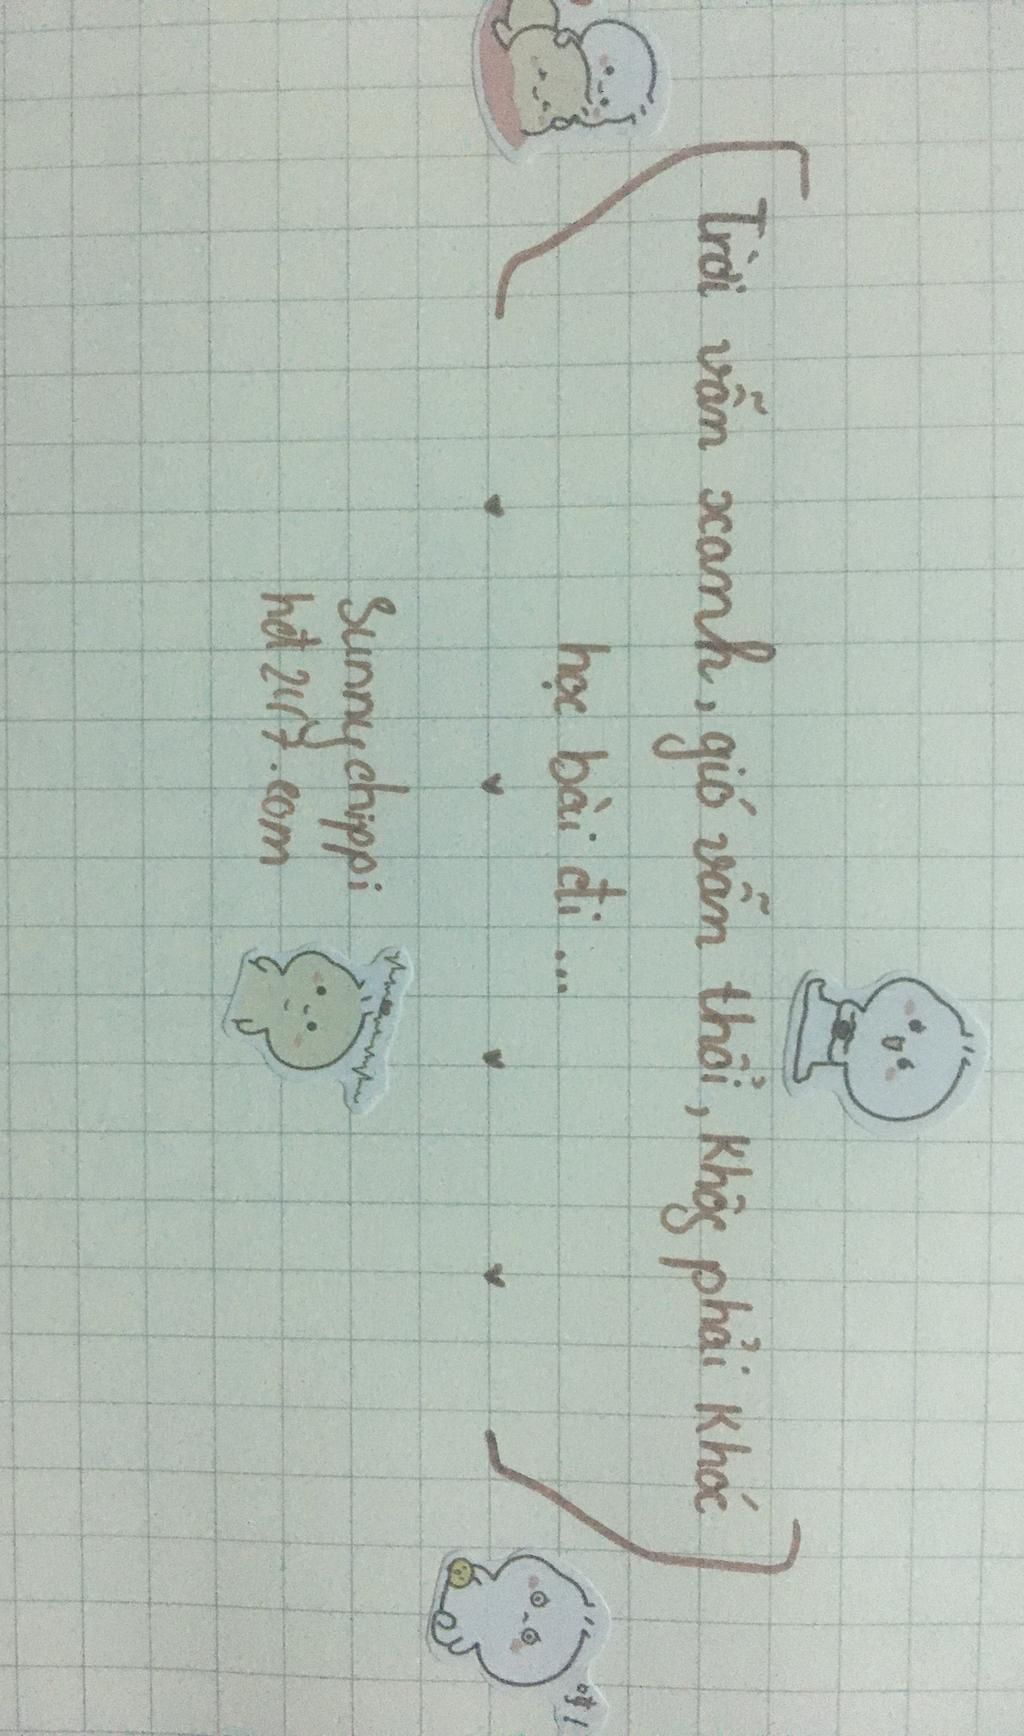 Trời vẫn xanh, gió vẫn thổi, Khôg phải khóc
học bài đi...
Sunny chippi
hđt 24/7.com